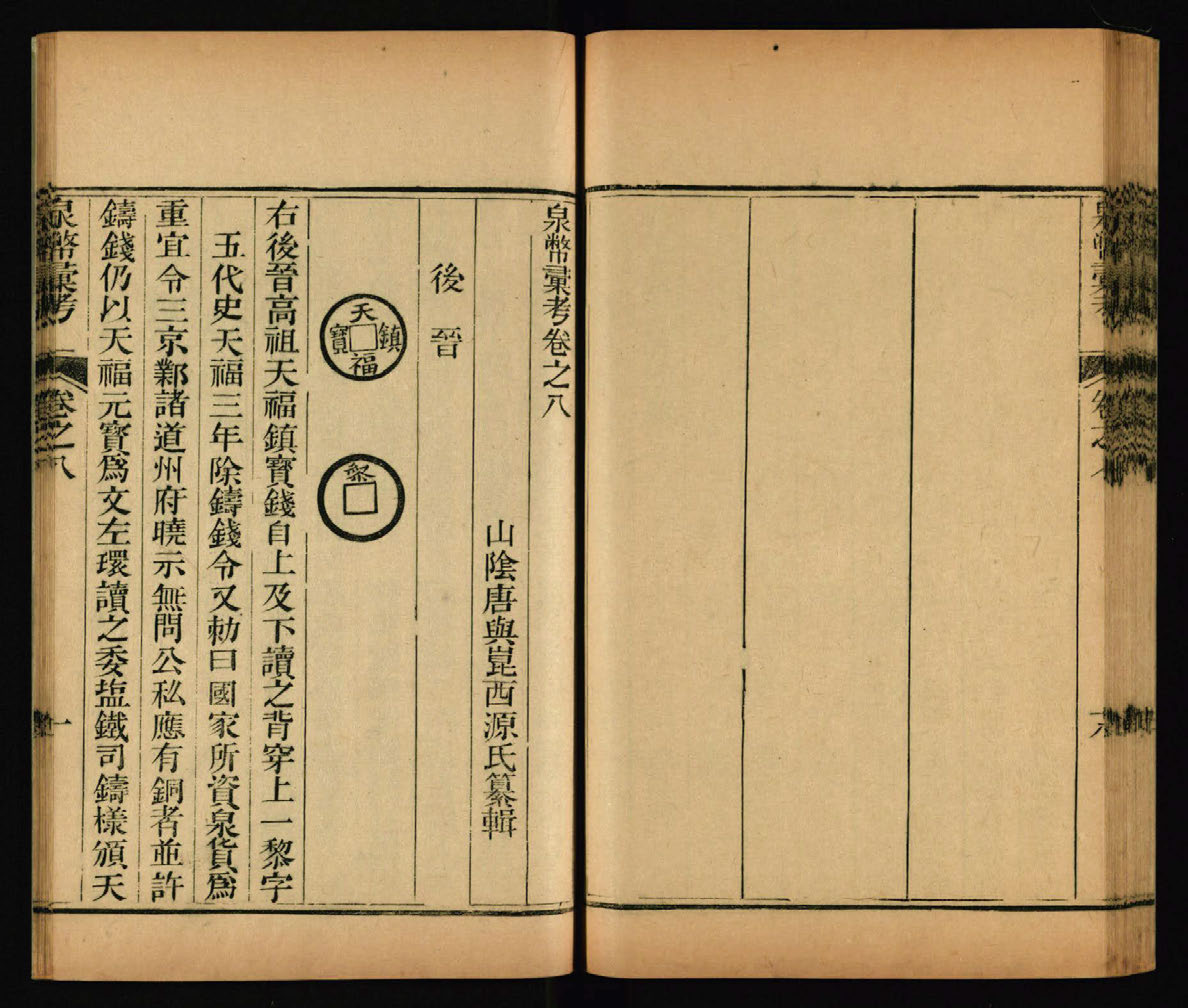 泉幣彙考
卷之
泉幣彙考卷之八
山陰唐與崑西源氏纂輯
後晉
天福鎮寶
黎
右後晉高祖天福鎮寶錢自上及下讀之背穿上一黎字
五代史天福三年除鑄錢令又勅曰國家所資泉貨爲
重宜令三京鄴諸道州府曉示無問公私應有銅者並許
鑄錢仍以天福元寶爲文左環讀之委塩鐵司鑄樣頒天
泉幣彙考
卷之八
一